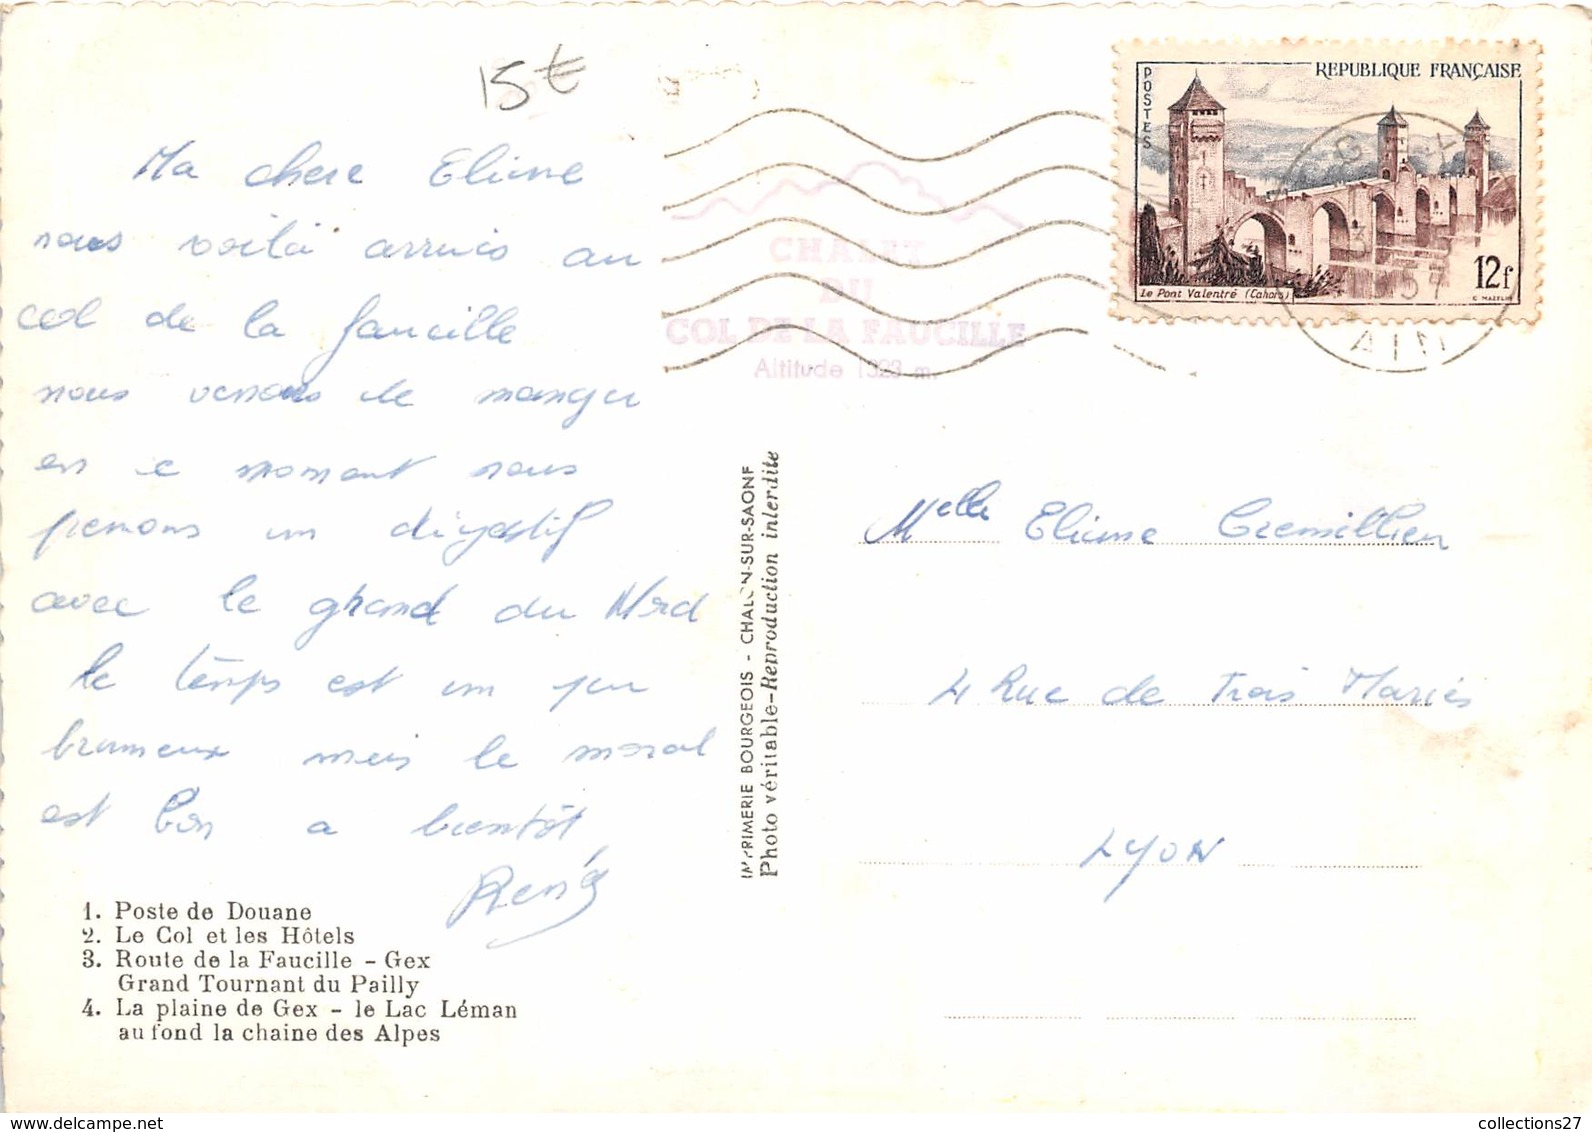 15€
Ma chere Eliane
nous voilà arrivés au
col de la faucille
nous venons de manger
en ce moment nous
prenons un digestif
avec le grand du Nord
le temps est un peu
brumeux mais le moral
est bon a bientôt
René
1. Poste de Douane
2. Le Col et les Hôtels
3. Route de la Faucille - Gex
Grand Tournant du Pailly
4. La plaine de Gex - le Lac Léman
au fond la chaine des Alpes
IMPRIMERIE BOURGEOIS - CHALON-SUR-SAONE
Photo véritable-Reproduction interdite
CHALET
DU
COL DE LA FAUCILLE
Altitude 1323 m.
POSTES
REPUBLIQUE FRANÇAISE
Le Pont Valentré (Cahors)
12f
C. MAZELIN
GEX
AIN
Melle Eliane Cremillieu
4 Rue de Trois Maries
LYON
collections27